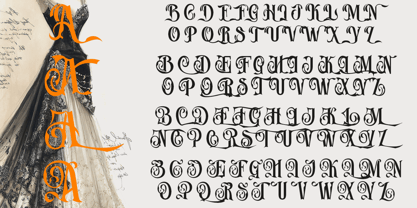 A
B C D E F G H I J K L M N
O P Q R S T U V W X Y Z
A
B C D E F G H I J K L M N
O P Q R S T U V W X Y Z
A
B C D E F G H I J K L M
N O P Q R S T U V W X Y Z
A
B C D E F G H I J K L M N
O P Q R S T U V W X Y Z